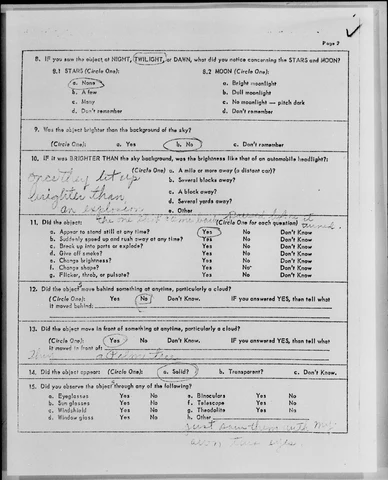 Page 7
8. IF you saw the object at NIGHT, TWILIGHT, or DAWN, what did you notice concerning the STARS and MOON?
8.1 STARS (Circle One): 8.2 MOON (Circle One):
a. None a. Bright moonlight
b. A few b. Dull moonlight
c. Many c. No moonlight — pitch dark
d. Don't remember d. Don't remember
9. Was the object brighter than the background of the sky?
(Circle One): a. Yes b. No c. Don't remember
10. IF it was BRIGHTER THAN the sky background, was the brightness like that of an automobile headlight?:
(Circle One) a. A mile or more away (a distant car)?
once they lit up b. Several blocks away?
brighter than c. A block away?
an explosion d. Several yards away?
e. Other
11. Did the object: (Circle One for each question)
a. Appear to stand still at any time? Yes No Don't Know
b. Suddenly speed up and rush away at any time? Yes No Don't Know
c. Break up into parts or explode? Yes No Don't Know
d. Give off smoke? Yes No Don't Know
e. Change brightness? Yes No Don't Know
f. Change shape? Yes No Don't Know
g. Flicker, throb, or pulsate? Yes No Don't Know
12. Did the object move behind something at anytime, particularly a cloud?
(Circle One): Yes No Don't Know. IF you answered YES, then tell what
it moved behind:
13. Did the object move in front of something at anytime, particularly a cloud?
(Circle One): Yes No Don't Know. IF you answered YES, then tell what
it moved in front of:
a Palm tree
14. Did the object appear: (Circle One): a. Solid? b. Transparent? c. Don't Know.
15. Did you observe the object through any of the following?
a. Eyeglasses Yes No e. Binoculars Yes No
b. Sun glasses Yes No f. Telescope Yes No
c. Windshield Yes No g. Theodolite Yes No
d. Window glass Yes No h. Other
just saw them with my
own two eyes.